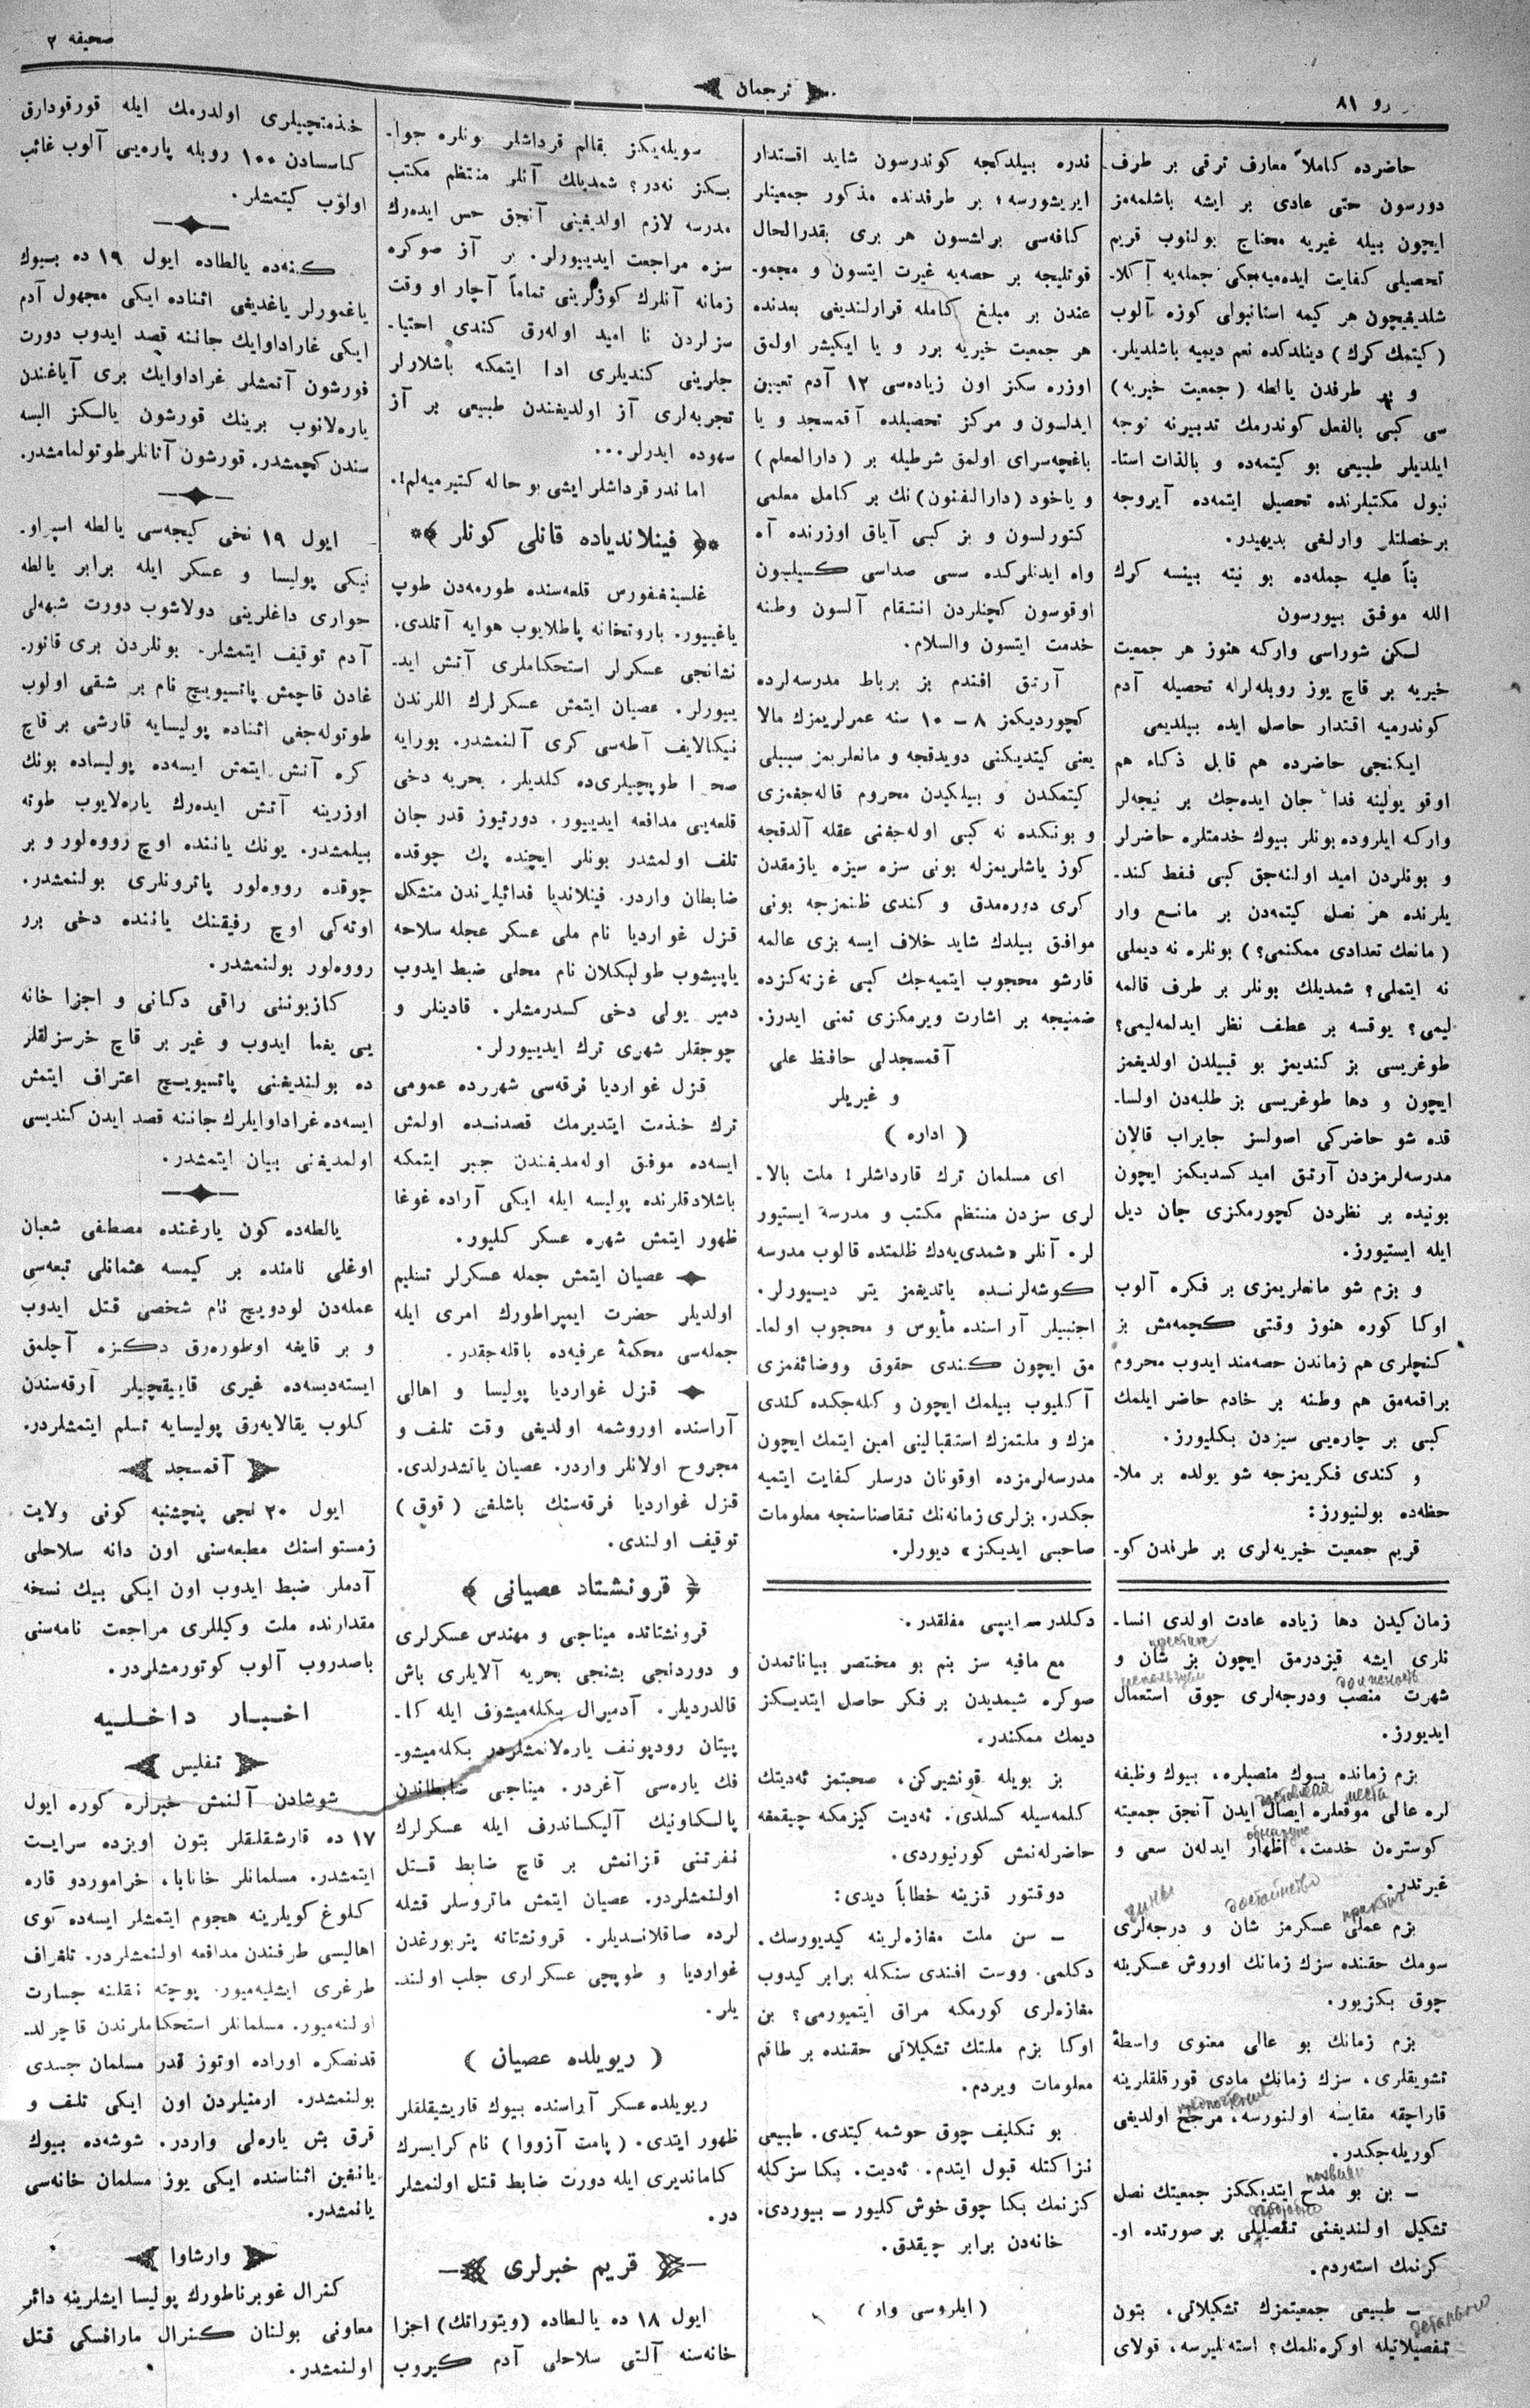 صحیفه ۲
ترجمان
رو ۸۱
حاضرده کاملاً معارف ترقی بر طرف
دورسون حتی عادی بر ایشه باشلمه‌مز
ایچون بیله غیریه محتاج بولنوب قریم
تحصیلی کفایت ایده‌میه‌جکی جمله‌یه آکلا-
شلدیغیچون هر کیمه استانبولی کوزه آلوب
(کیتمك کرك) دینلدکده نعم دیمیه باشلدیلر.
و بر طرفدن یالطه (جمعیت خیریه)
سی کبی بالفعل کوندرمك تدبیرنه توجه
ایلدیلر طبیعی بو کیتمه‌ده و بالذات استا-
نبول مکتبلرنده تحصیل ایتمه‌ده آیروجه
برخصلتلر وارلغی بدیهیدر.
بناً علیه جمله‌ده بو نیته بینسه کرك
الله موفق بیورسون
لسکن شوراسی وارکه هنوز هر جمعیت
خیریه بر قاچ یوز روبله‌لرله تحصیله آدم
کوندرمیه اقتدار حاصل ایده بیلدیمی
ایکنجی حاضرده هم قابل ذکاء هم
اوقو یولینه فدا جان ایده‌جك بر نیجه‌لر
وارکه ایلروده بونلر بیوك خدمتلره حاضرلر
و بونلردن امید اولنه‌جق کبی فقط کند-
یلرنده هر نصل کیتمه‌دن بر مانع وار
(مانعك تعدادی ممکنمی؟) بونلره نه دیملی
نه ایتملی؟ شمدیلك بونلر بر طرف قالمه
لیمی؟ یوقسه بر عطف نظر ایدلمه‌لیمی؟
طوغریسی بز کندیمز بو قبیلدن اولدیغمز
ایچون و دها طوغریسی بز طلبه‌دن اولسا-
قده شو حاضرکی اصولسز جایراب قالان
مدرسه‌لرمزدن آرتق امید کسدیکمز ایچون
بونیده بر نظردن کچورمکزی جان دیل
ایله ایستیورز.
و بزم شو مانعلریمزی بر فکره آلوب
اوکا کوره هنوز وقتی کچمه‌مش بز
کنجلری هم زماندن حصه‌مند ایدوب محروم
براقمه‌مق هم وطنه بر خادم حاضر ایلمك
کبی بر چاره‌یی سیزدن بکلیورز.
و کندی فکریمزجه شو یولده بر ملا-
حظه‌ده بولنیورز:
قریم جمعیت خیریه‌لری بر طرفدن کو-
ندره بیلدکجه کوندرسون شاید اقتدار
ایریشورسه؛ بر طرفدنده مذکور جمعیتلر
کافه‌سی برلشسون هر بری بقدرالحال
قوتلیجه بر حصه‌یه غیرت ایتسون و مجمو-
عندن بر مبلغ کامله قرارلندیغی بعدنده
هر جمعیت خیریه برر و یا ایکیشر اولمق
اوزره سکز اون زیاده‌سی ۱۲ آدم تعیین
ایدلسون و مرکز تحصیلده آقمسجد و یا
باغچه‌سرای اولمق شرطیله بر (دارالمعلم)
و یاخود (دارالفنون)نك بر کامل معلمی
کتورلسون و بز کبی آیاق اوزرنده آه
واه ایدنلرکده سسی صداسی کسیلسون
اوقوسون کچنلردن انتقام آلسون وطنه
خدمت ایتسون والسلام.
آرتق افندم بز برباط مدرسه‌لرده
کچوردیکمز ۸ – ۱۰ سنه عمرلریمزك مالا
یعنی کیتدیکنی دویدقجه و مانعلریمز سببیلی
کیتمکدن و بیلکیدن محروم قاله‌جغمزی
و بونکده نه کبی اوله‌جغنی عقله آلدقجه
کوز یاشلریمزله بونی سزه سیزه یازمقدن
کری دوره‌مدق و کندی ظنمزجه بونی
موافق بیلدك شاید خلاف ایسه بزی عالمه
قارشو محجوب ایتمیه‌جك کبی غزته‌کزده
ضمنیجه بر اشارت ویرمکزی تمنی ایدرز.
آقمسجدلی حافظ علی
و غیریلر
(اداره)
ای مسلمان ترك قارداشلر! ملت بالا-
لری سزدن منتظم مکتب و مدرسه ایستیور
لر. آنلر «شمدی‌یه‌دك ظلمتده قالوب مدرسه
کوشه‌لرنده یاتدیغمز یتر دیسیورلر.
اجنبیلر آراسنده مأیوس و محجوب اولما-
مق ایچون کندی حقوق ووضائفمزی
آکلیوب بیلمك ایچون و کله‌جکده کندی
مزك و ملتمزك استقبالینی امین ایتمك ایچون
مدرسه‌لرمزده اوقونان درسلر کفایت ایتمیه
جکدر. بزلری زمانه‌نك تقاصناسنجه معلومات
صاحبی ایدیکز» دیورلر.
سویله‌یکز بقالم قرداشلر بونلره جوا-
بکز نه‌در؟ شمدیلك آنلر منتظم مکتب
مدرسه لازم اولدیغینی آنجق حس ایده‌رك
سزه مراجعت ایدییورلر. بر آز صوکره
زمانه آنلرك کوزلرینی تماماً آچار او وقت
سزلردن نا امید اوله‌رق کندی احتیا-
جلرینی کندیلری ادا ایتمکه باشلارلر
تجربه‌لری آز اولدیغندن طبیعی بر آز
سهوده ایدرلر...
اما ندر قرداشلر ایشی بو حاله کتیرمیه‌لم!.
فینلاندیاده قانلی کونلر
غلسینغفورس قلعه‌سنده طورمه‌دن طوپ
یاغیبور. باروتخانه پاطلایوب هوایه آتلدی.
نشانجی عسکرلر استحکاملری آتش اید-
ییورلر. عصیان ایتمش عسکرلرك اللرندن
نیکالایف آطه‌سی کری آلنمشدر. بورایه
صحرا طوپچیلری‌ده کلدیلر. بحریه دخی
قلعه‌یی مدافعه ایدییور. دورتیوز قدر جان
تلف اولمشدر بونلر ایچنده پك چوقده
ضابطان واردر. فینلاندیا فدائیلرندن متشکل
قزل غواردیا نام ملی عسکر عجله سلاحه
یاپیشوب طولیکلان نام محلی ضبط ایدوب
دمیر یولی دخی کسدرمشلر. قادینلر و
چوجقلر شهری ترك ایدییورلر.
قزل غواردیا فرقه‌سی شهررده عمومی
ترك خذمت ایتدیرمك قصدنده اولمش
ایسه‌ده موفق اوله‌مدیغندن جبر ایتمکه
باشلادقلرنده پولیسه ایله ایکی آراده غوغا
ظهور ایتمش شهره عسکر کلیور.
عصیان ایتمش جمله عسکرلر تسلیم
اولدیلر حضرت ایمپراطورك امری ایله
جمله‌سی محکمهٔ عرفیه‌ده باقله‌جقدر.
قزل غواردیا پولیسا و اهالی
آراسنده اوروشمه اولدیغی وقت تلف و
مجروح اولانلر واردر. عصیان یاتشدرلدی.
قزل غواردیا فرقه‌سنك باشلغی (قوق)
توقیف اولندی.
قرونشتاد عصیانی
قرونشتاتده میناجی و مهندس عسکرلری
و دوردنجی بشنجی بحریه آلایلری باش
قالدردیلر. آدمیرال بکله‌میشوف ایله کا-
پیتان رودیونف یاره‌لانمشلردر بکله‌میشو-
فك یاره‌سی آغردر. میناجی ضابطاندن
پالکاونیك آلیکساندرف ایله عسکرلرك
نفرتنی قزانمش بر قاچ ضابط قتل
اولنمشلردر. عصیان ایتمش ماتروسلر قشله
لرده صاقلاندیلر. قرونشتاته پتربورغدن
غواردیا و طوپچی عسکرلری جلب اولند-
یلر.
(ریویلده عصیان)
ریویلده عسکر آراسنده بیوك قاریشیقلقلر
ظهور ایتدی. (پامت آزووا) نام کرایسرك
کاماندیری ایله دورت ضابط قتل اولنمشلر
در.
قریم خبرلری
ایول ۱۸ ده یالطاده (ویتورانك) اجزا
خانه‌سنه آلتی سلاحلی آدم کیروب
خذمتچیلری اولدرمك ایله قورقودارق
کاسسادن ۱۰۰ روبله پاره‌یی آلوب غائب
اولوب کیتمشلر.
کنه‌ده یالطاده ایول ۱۹ ده بیوك
یاغمورلر یاغدیغی اثناده ایکی مجهول آدم
ایکی غاراداوایك جاننه قصد ایدوب دورت
قورشون آتمشلر غراداوایك بری آیاغندن
یاره‌لانوب برینك قورشون یالکز البسه
سندن کچمشدر. قورشون آتانلر طوتولمامشدر.
ایول ۱۹ نخی کیجه‌سی یالطه اسپراو-
نیکی پولیسا و عسکر ایله برابر یالطه
جواری داغلرینی دولاشوب دورت شبهه‌لی
آدم توقیف ایتمشلر. بونلردن بری قاتور-
غادن قاچمش پاتسیویچ نام بر شقی اولوب
طوتوله‌جغی اثناده پولیسایه قارشی بر قاچ
کره آتش ایتمش ایسه‌ده پولیساده بونك
اوزرینه آتش ایده‌رك یاره‌لایوب طوته
بیلمشدر. بونك یاننده اوچ رووه‌لور و بر
چوقده رووه‌لور پاترونلری بولنمشدر.
اوته‌کی اوچ رفیقنك یاننده دخی برر
رووه‌لور بولنمشدر.
کازیوننی راقی دکانی و اجزا خانه
یی یغما ایدوب و غیر بر قاچ خرسزلقلر
ده بولندیغنی پاتسیویچ اعتراف ایتمش
ایسه‌ده غراداوایلرك جاننه قصد ایدن کندیسی
اولمدیغنی بیان ایتمشدر.
یالطه‌ده کون یارغنده مصطفی شعبان
اوغلی نامنده بر کیمسه عثمانلی تبعه‌سی
عمله‌دن لودویچ نام شخصی قتل ایدوب
و بر قایغه اوطوره‌رق دکزه آچلمق
ایسته‌دیسه‌ده غیری قاییقچیلر آرقه‌سندن
کلوب یقالایه‌رق پولیسایه تسلم ایتمشلردر.
آقمسجد
ایول ۲۰ نجی پنچشنبه کونی ولایت
زمستواسنك مطبعه‌سنی اون دانه سلاحلی
آدملر ضبط ایدوب اون ایکی بیك نسخه
مقدارنده ملت وکیللری مراجعت نامه‌سنی
باصدروب آلوب کوتورمشلردر.
اخبار داخلیه
تفلیس
شوشادن آلنمش خبرلره کوره ایول
۱۷ ده قارشقلقلر بتون اویزده سرایت
ایتمشدر. مسلمانلر خانابا، خراموردو قاره
کلوغ کویلرینه هجوم ایتمشلر ایسه‌ده کوی
اهالیسی طرفندن مدافعه اولنمشلردر. تلغراف
طرغری ایشلیه‌میور. پوچته نقلنه جسارت
اولنه‌میور. مسلمانلر استحکاملرندن قاچرلد-
قدنصکره اوراده اوتوز قدر مسلمان جسدی
بولنمشدر. ارمنیلردن اون ایکی تلف و
قرق بش یاره‌لی واردر. شوشه‌ده بیوك
یانغین اثناسنده ایکی یوز مسلمان خانه‌سی
یانمشدر.
وارشاوا
کنرال غوبرناطورك پولیسا ایشلرینه دائر
معاونی بولنان کنرال مارافسکی قتل
اولنمشدر.
زمان کیدن دها زیاده عادت اولدی انسا-
نلری ایشه قیزدرمق ایچون بز شان و
شهرت منصب ودرجه‌لری چوق استعمال
ایدیورز.
بزم زمانده بیوك منصبلره، بیوك وظیفه
لره عالی موقعلره ایصال ایدن آنجق جمعیته
کوسترەن خدمت، اظهار ایدلەن سعی و
غیرتدر.
بزم عملی عسکرمز شان و درجه‌لری
سومك حقنده سزك زمانك اوروش عسکرینه
چوق بکزیور.
بزم زمانك بو عالی معنوی واسطهٔ
تشویقلری، سزك زمانك مادی قورقلقلرینه
قاراچقه مقایسه اولنورسه، مرجح اولدیغی
کوریله‌جکدر.
– بن بو مدح ایتدیککز جمعیتك نصل
تشکیل اولندیغنی تفصیلیلی بر صورتده او-
کرنمك استه‌ردم.
– طبیعی جمعیتمزك تشکیلاتی، بتون
تفصیلاتیله اوکره‌نلمك؟ استه‌نلیرسه، قولای
دکلدر – ایپی مفلقدر.
مع مافیه سز بنم بو مختصر بیاناتمدن
صوکره شیمدیدن بر فکر حاصل ایتدیکز
دیمك ممکندر.
بز بویله قونشیرکن، صحبتمز ئه‌دیتك
کلمه‌سیله کسلدی. ئه‌دیت کیزمکه چیقمغه
حاضرله‌نمش کورنیوردی.
دوقتور قزینه خطاباً دیدی:
– سن ملت مغازه‌لرینه کیدیورسك.
دکلمی. ووست افندی سنکله برابر کیدوب
مغازه‌لری کورمکه مراق ایتمیورمی؟ بن
اوکا بزم ملتك تشکیلاتی حقنده بر طاقم
معلومات ویردم.
بو تکلیف چوق حوشمه کیتدی. طبیعی
نزاکتله قبول ایتدم. ئه‌دیت. بکا سزکله
کزنمك بکا چوق خوش کلیور – بیوردی.
خانه‌دن برابر چیقدق.
(ایلروسی وار)